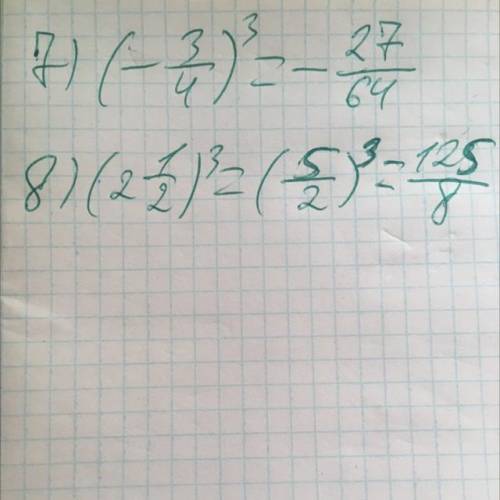 7) (-3/4)³ = -27/64
8) (2 1/2)³ = (5/2)³ = 125/8